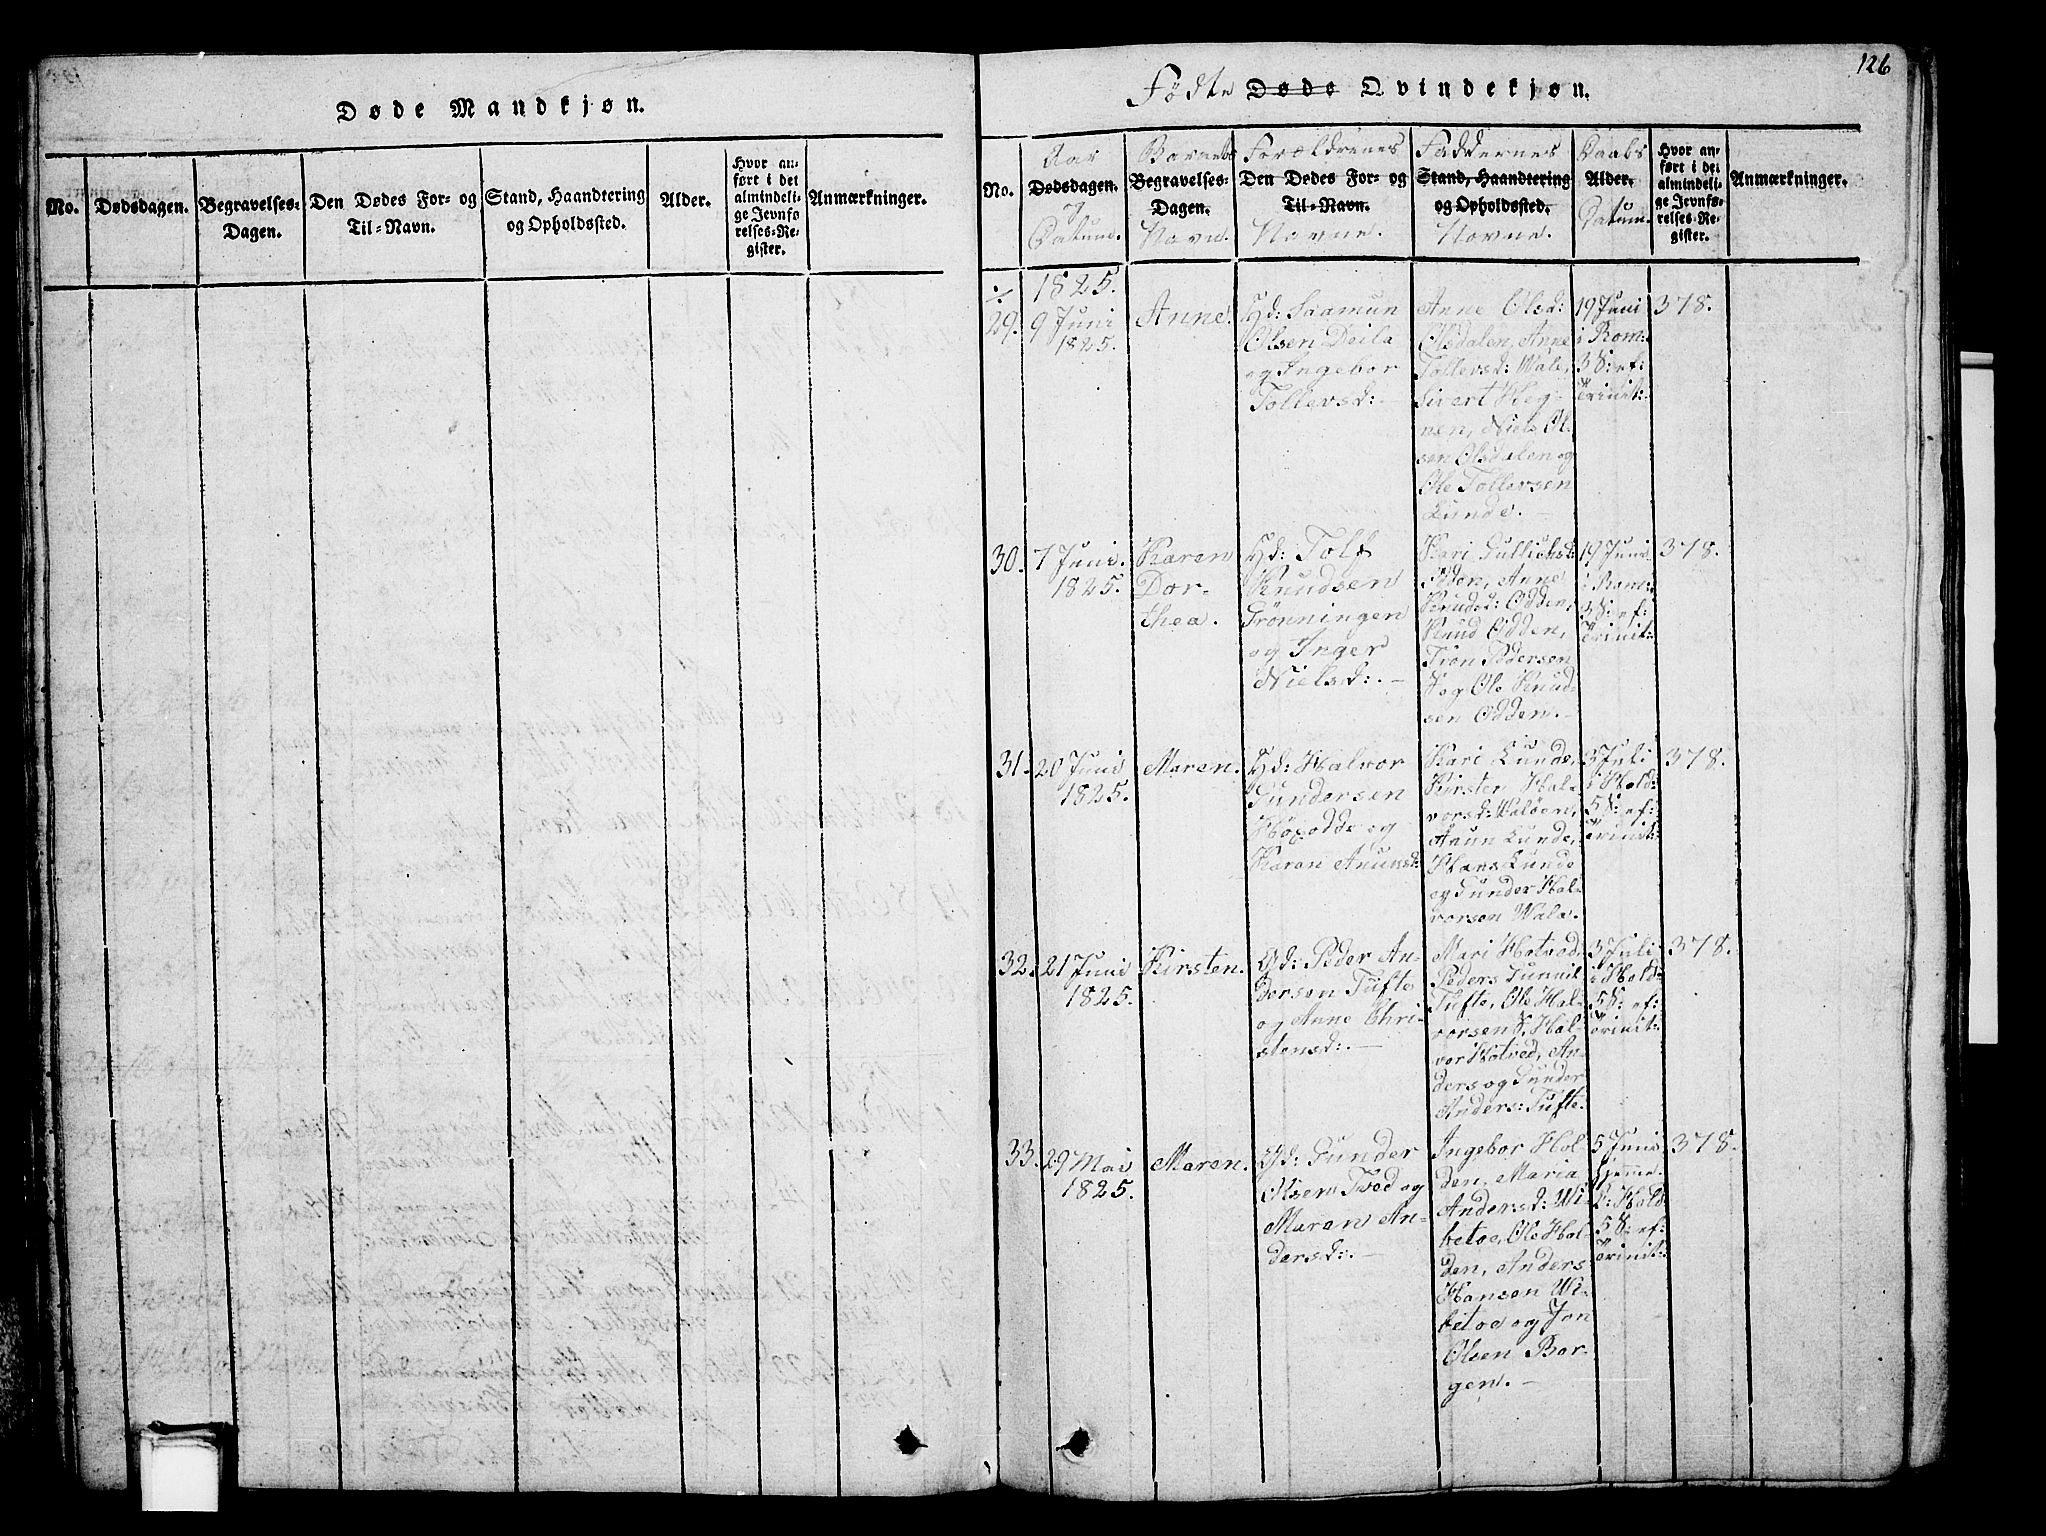 126
Døde Mandkjøn.
No.
Dødsdagen.
Begravelses-
Dagen.
Den Dødes For- og
Til-Navn.
Stand, Haandtering
og Opholdssted.
Alder.
Hvor an-
ført i det
almindeli-
ge Jevnfø
relses-Re-
gister.
Anmærkninger.
Födte Døde Qvindekjøn.
No.
Aar
Dødsdagen.
og
Datum.
Barnets
Begravelses-
Dagen.
Navn.
Forældrenes
Den Dødes For- og
Til-Navn.
Navne.
Faddernes
Stand, Haandtering
og Opholdssted.
Navne.
Daabs
Alder.
Datum.
Hvor an-
ført i det
almindeli-
ge Jevnfø-
relses-Re-
gister.
Anmærkninger.
1825.
29.
9 Juni
1825.
Anne.
Gd: Saamun
Olsen Deila
og Ingebor
Tollevsd: -
Anne Olsd:
Olsdalen, Anne
Tollevsd: Wale,
Sivert Heg-
nen, Niels Ol-
sen Olsdalen og
Ole Tollevsen
Lunde. -
19 Juni
i Rom:
3 S: ef:
Trinit:
378.
30.
7 Juni.
1825.
Karen
Dor-
thea.
Gd: Tolf
Knudsen
Grönningen
og Inger
Nielsd: . -
Kari Gullichsd:
Odden, Anne
Knudsd: Odden,
Knud Odden,
Tron Pedersen
og Ole Knud-
sen Odden. -
19 Juni
i Rom:
3 S: ef:
Trinit:
378.
31.
20 Juni
1825.
Maren.
Gd: Halvor
Gundersen
og
Karen Anunsd:
Kari Lunde,
Kirsten Hal-
vorsd:
Anun Lunde,
Hans Lunde
og Gunder Hal-
vorsen Wala.
3 Juli
i Hold:
5 S: ef:
Trinit:
378.
32.
21 Juni
1825.
Kirsten.
Gd: Peder An-
dersen Tufte
og Anne Chri-
stensd: . -
Mari Hotved,
Peders
Tufte, Ole Hal-
vorsen Hal-
vor Hotved, An-
ders og Gunder
Anders: Tufte.
3 Juli
i Hold:
5 S: ef:
Trinit:
378.
33.
29 Mai
1825.
Maren.
Gd: Gunder
Olsen Tved og
Maren An-
dersd: . -
Ingebor Hol-
den, Maria
Andersd: Wi-
betoe, Ole Hol-
den, Anders
Hansen Wi-
betoe og Jon
Olsen Bor-
gen. -
5 Juni
hjemme.
D: Hold:
5 S: ef:
Trinit:
378.